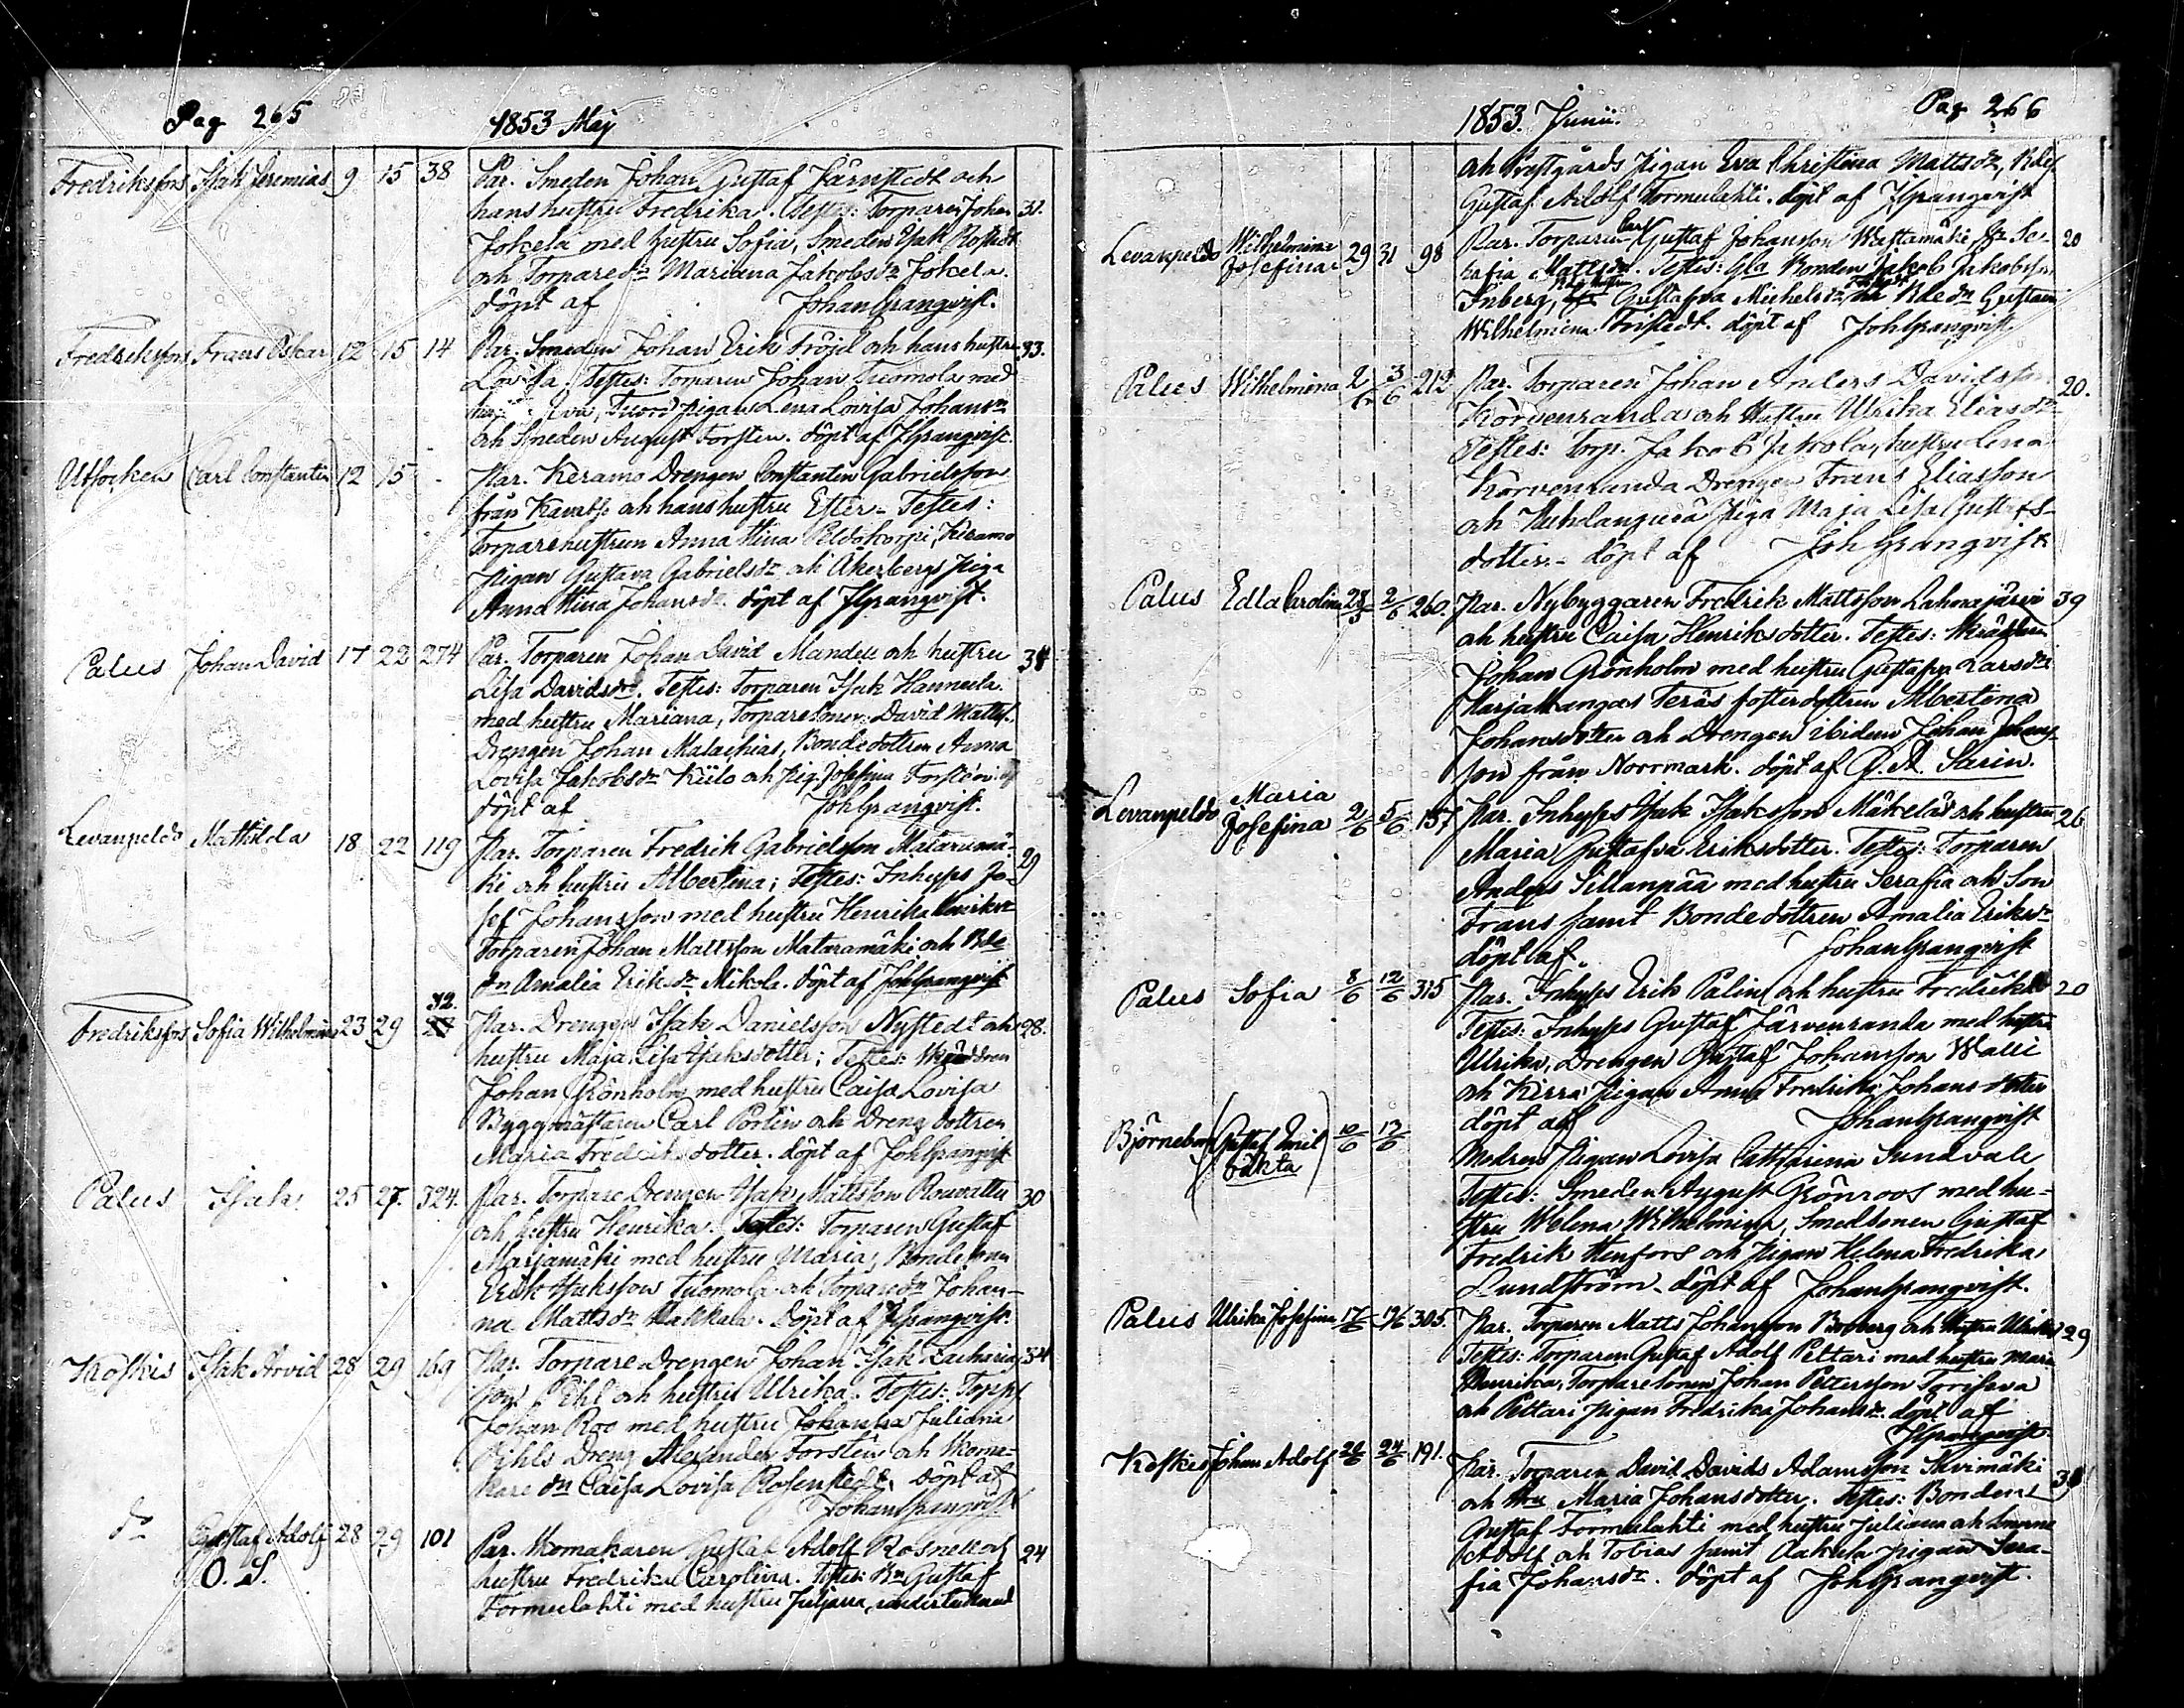 Pag 265
1853 Maj
Fredriksfors Isak Jeremias 9 15 38 Par. Smeden Johan Gustaf Järnstedt och
hans hustru Fredrika. Testes: Torparen Johan 31.
Jokela med hustru Sofia, Smeden Isak Rostedt
och Torparedr Mariana Jakobsdr Jokela.
döpt af Johan Granqvist.
Fredriksfors Frans Oskar 12 15 14 Par. Smeden Johan Erik Fröjd och hans hustru 33.
Lovisa. Testes: Torparen Johan Tuomola med
Eva, pigan Lena Lovisa Johansdr
och Smeden August Forsten. döpt af JGranqvist.
Utsocken (Carl Constantin) 12 15 Par. Keramo Drengen Constantin Gabrielsson
från och hans hustru Ester. Testes:
Torparehustrun Anna Stina Peldokorpi, Keramo
Pigan Gustava Gabrielsdr och Åkerbergs Piga
Anna Stina Johansdr. döpt af JGranqvist.
Palus Johan David 17 22 274 Par. Torparen Johan David Mandell och hustru 34
Lisa Davidsdr. Testes: Torparen Isak Hannula
med hustru Mariana, Torparesonen David Matts.
Drengen Johan Malachias, Bondedottren Anna
Lovisa Jakobsdr Kulo och pig. Josefina Forstén
döpt af JohGranqvist.
Levanpeldo Mathilda 18 22 119 Par. Torparen Fredrik Gabrielsson Mataramä-
ki och hustru Albertina; Testes: Inhyses Jo- 29
sef Johansson med hustru Henrika Henriksdr
Torparen Johan Mattsson Mataramäki och Bde
dn Amalia Eriksdr Mikola. döpt af JohGranqvist
32.
Fredriksfors Sofia Wilhelmina 23 29 Par. Drengen Isak Danielsson Nystedt och 28.
hustru Maja Lisa Isaksdotter; Testes: Skräddren
Johan Grönholm med hustru Caisa Lovisa
Byggmästaren Carl Portin och Dreng dottren
Maria Fredriksdotter. döpt af JohGranqvist
Palus Isak 25 27. 324. Par. Torpare Drengen Isak Mattsson Rouvattu 30
och hustru Henrika. Testes: Torparen Gustaf
Marjamäki med hustru Maria, Bondesonen
Erik Isaksson Tuomola och Torparedn Johan-
na Mattsdr Hakkala. Döpt af JGranqvist.
Koskis Isak Arvid 28 29 169 Par. Torpare Drengen Johan Isak Zacharias 34
son Pihl och hustru Ulrika. Testes: Torp.
Johan Roo med hustru Johanna Juliana
Pihls Dreng Alexander Forsten och Skoma-
kare dn Caisa Lovisa Rosenstedt. Döpt af
Johan Granqvist.
do Gustaf Adolf 28 29 101 Par. Skomakaren Gustaf Adolf Rosnell och 24
O. S. hustru Fredrika Carolina. Testes: Bn Gustaf
Tormulahti med hustru Juliana, undertecknad
1853. Junii. Pag 266
och Prestgårds Pigan Eva Christina Mattsdr, Bdes
Gustaf Adolf Tormulahti. döpt af JGranqvist
Levanpeldo Wilhelmina 29 31 98 Par. Torparen Carl Gustaf Johansson Wästamäki Se- 20
Josefina rafia Mattsdr. Testes: Gla Bonden Jakob Jakobsson
Inberg, Gustafva Michelsdr, Bde dn Gustava
Wilhelmina Fristedt. döpt af JohGranqvist.
Palus Wilhelmina 2/6 3/6 212 Par. Torparen Johan Anders Davidsson 20.
Körvenranda och Hustru Ulrika Eliasdr
Testes: Torp. Jakob Jukola, hustru Lena
Körvenranda Drengen Frans Eliasson
och Piga Maja Lisa Gustafs-
dotter. döpt af JohGranqvist
Palus Edla Carolina 28/5 2/6 260. Par. Nybyggaren Fredrik Mattsson Lahnajärvi 39
och hustru Caisa Henriksdotter. Testes: Skräddren
Johan Grönholm med hustru Gustafva Larsdr
Harjakangas Teräs fosterdottren Albertina
Johansdotter och Drengen ibidem Johan Johans-
son från Norrmark. döpt af G. A. Sarin.
Levanpeldo Maria 2/6 5/6 157 Par. Inhyses Isak Isaksson Mäkelä och hustru 26
Josefina Maria Gustafva Eriksdotter. Testes: Torparen
Anders Sillanpää med hustru Serafia och Son
Frans samt Bondedottren Amalia Eriksdr
döpt af. Johan Granqvist
Palus Sofia 8/6 12/6 315 Par. Inhyses Erik Palin och hustru Fredrika 20
Testes: Inhyses Gustaf Järvenranda med hustru
Ulrika, Drengen Gustaf Johansson Walli
och Kirra Pigan Anna Fredrika Johansdotter
döpt af Johan Granqvist
Björneborg (Gustaf Emil 10/6 12/6 Modren Pigan Lovisa Catharina Sundvall
oäkta) Testes: Smeden August Grönroos med hu-
stru Helena Wilhelmina, Smedsonen Gustaf
Fredrik Henfors och Pigan Helena Fredrika
Lundström. döpt af Johan Granqvist.
Palus Ulrika Josefina 17/6 19/6 305. Par. Torparen Matts Johansson Broberg och Hustru Ulrika 29
Testes: Torparen Gustaf Adolf Pettari med hustru Maria
Henrika, Torparesonen Johan Pettersson
och Pettari Pigan Fredrika Johansdr. döpt af
JGranqvist.
Koskis Johan Adolf 24/6 191. Par. Torparen David Davids Adamsson Kivimäki
och Hru Maria Johansdotter. Testes: Bonden
Gustaf Tormulahti med hustru Juliana och Sonerne
Adolf och Tobias samt pigan Sera-
fia Johansdr. Döpt af JohGranqvist.